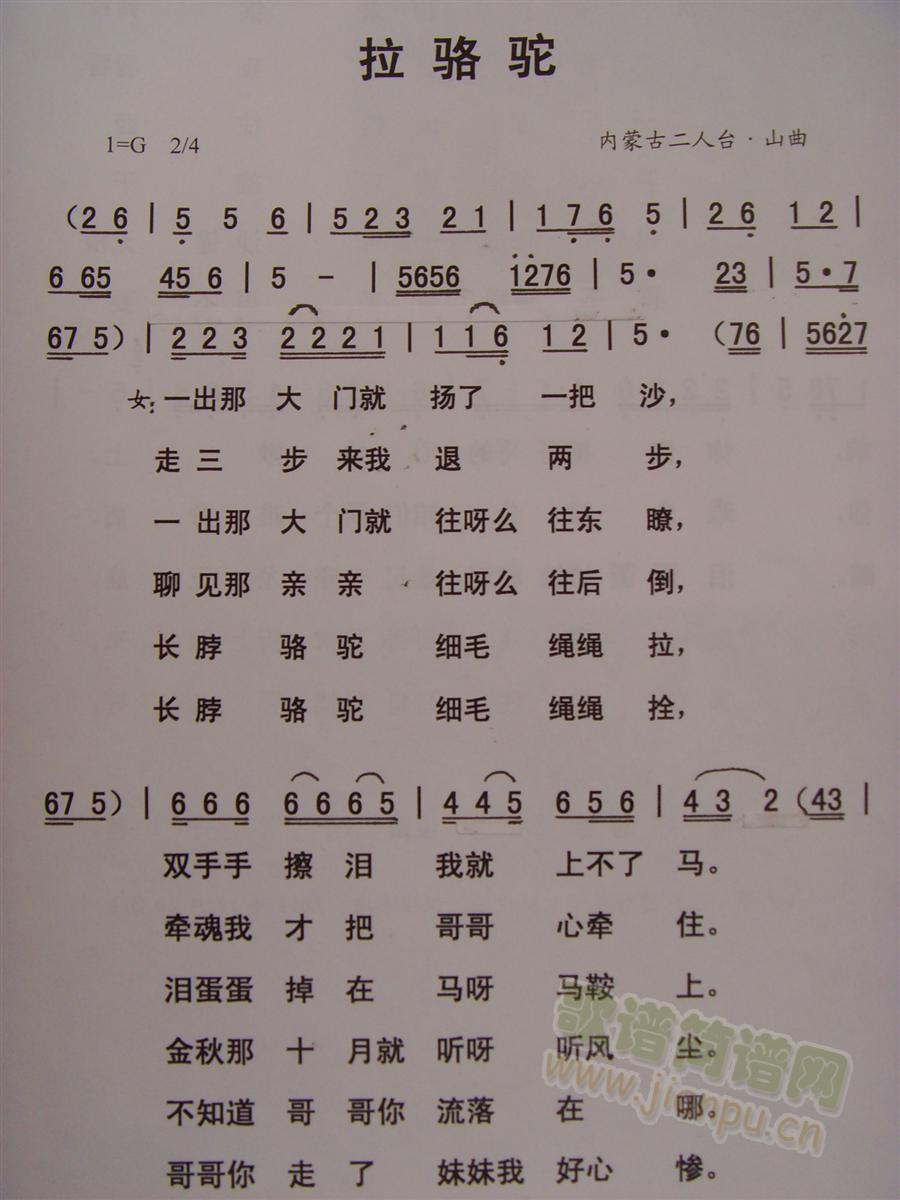 拉骆驼
1=G 2/4 内蒙古二人台·山曲
（2 6 | 5 5 6 | 5 2 3 2 1 | 1 7 6 5 | 2 6 1 2 |
6 65 45 6 | 5 － | 5656 1276 | 5· 23 | 5·7
67 5）| 2 2 3 2 2 2 1 | 1 1 6 1 2 | 5· （76 | 5627
女：一出那 大 门就 扬了 一把 沙，
走三 步 来我 退 两 步，
一出那 大 门就 往呀么 往东 瞭，
聊见那 亲亲 往呀么 往后 倒，
长脖 骆驼 细毛 绳绳 拉，
长脖 骆驼 细毛 绳绳 拴，
67 5）| 6 6 6 6 6 6 5 | 4 4 5 6 5 6 | 4 3 2（43 |
双手手 擦 泪 我就 上不了 马。
牵魂我 才把 哥哥 心牵 住。
泪蛋蛋 掉在 马呀 马鞍 上。
金秋那 十 月就 听呀 听风 尘。
不知道 哥 哥你 流落 在 哪。
哥哥你 走了 妹妹我 好心 惨。
歌谱简谱网
www.jianpu.cn